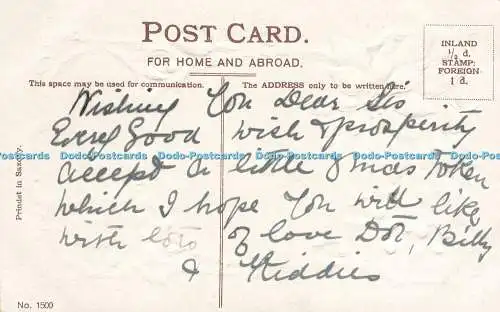 POST CARD.
FOR HOME AND ABROAD.
INLAND
½ d.
STAMP:
FOREIGN
1 d.
This space may be used for communication.
The ADDRESS only to be written here.
Wishing You Dear Sis
Every Good wish & prosperity
Dodo-Postcards Dodo-Postcards Dodo-Postcards Dodo-Postcards Dodo-Postcards
accept a little Xmas token
which I hope You will like
with lots of love Dot, Billy
& Kiddies
Printed in Saxony.
No. 1500